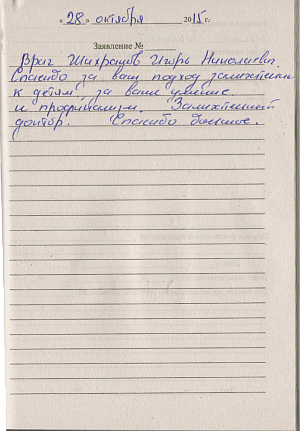 « 28 » октября 2015 г.
Заявление №
Врач Шихрашов Игорь Николаевич.
Спасибо за ваш подход замечательн
к детям, за ваши умение
и професиализм. Замечательный
доктор. Спасибо большое.